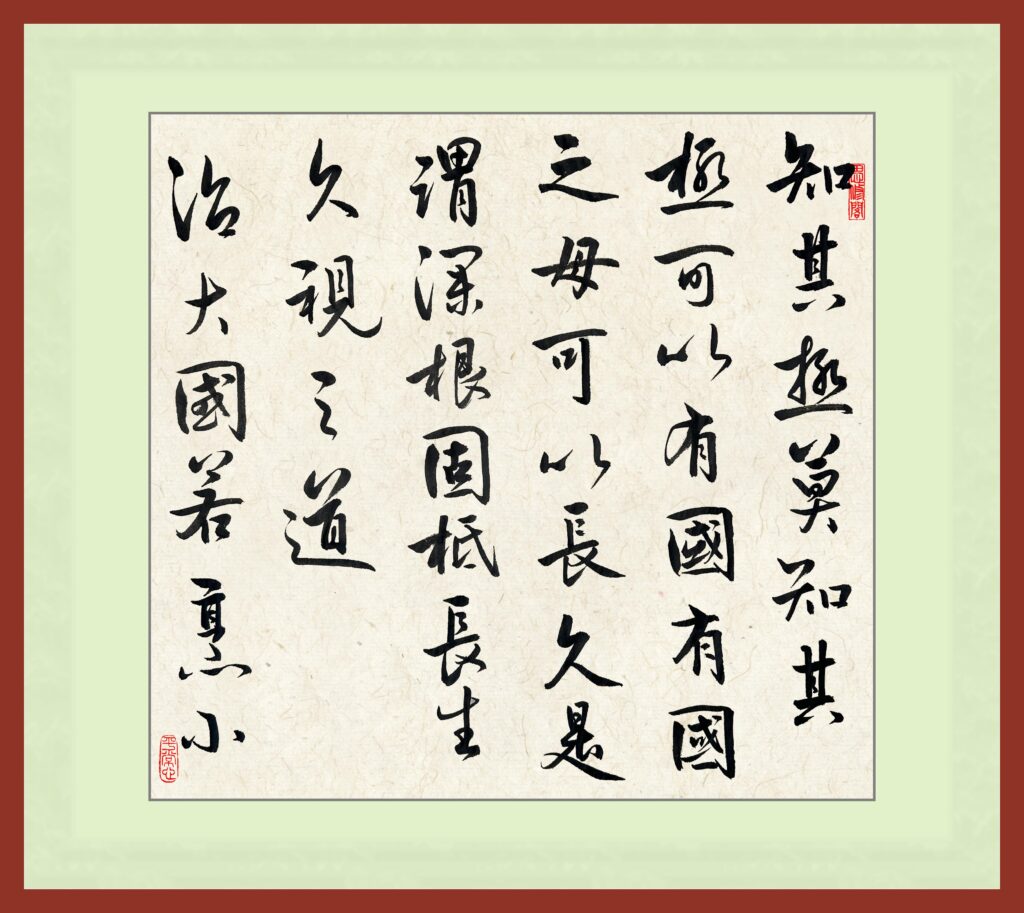 知其極莫知其
極可以有國有國
之母可以長久是
謂深根固柢長生
久視之道
治大國若烹小